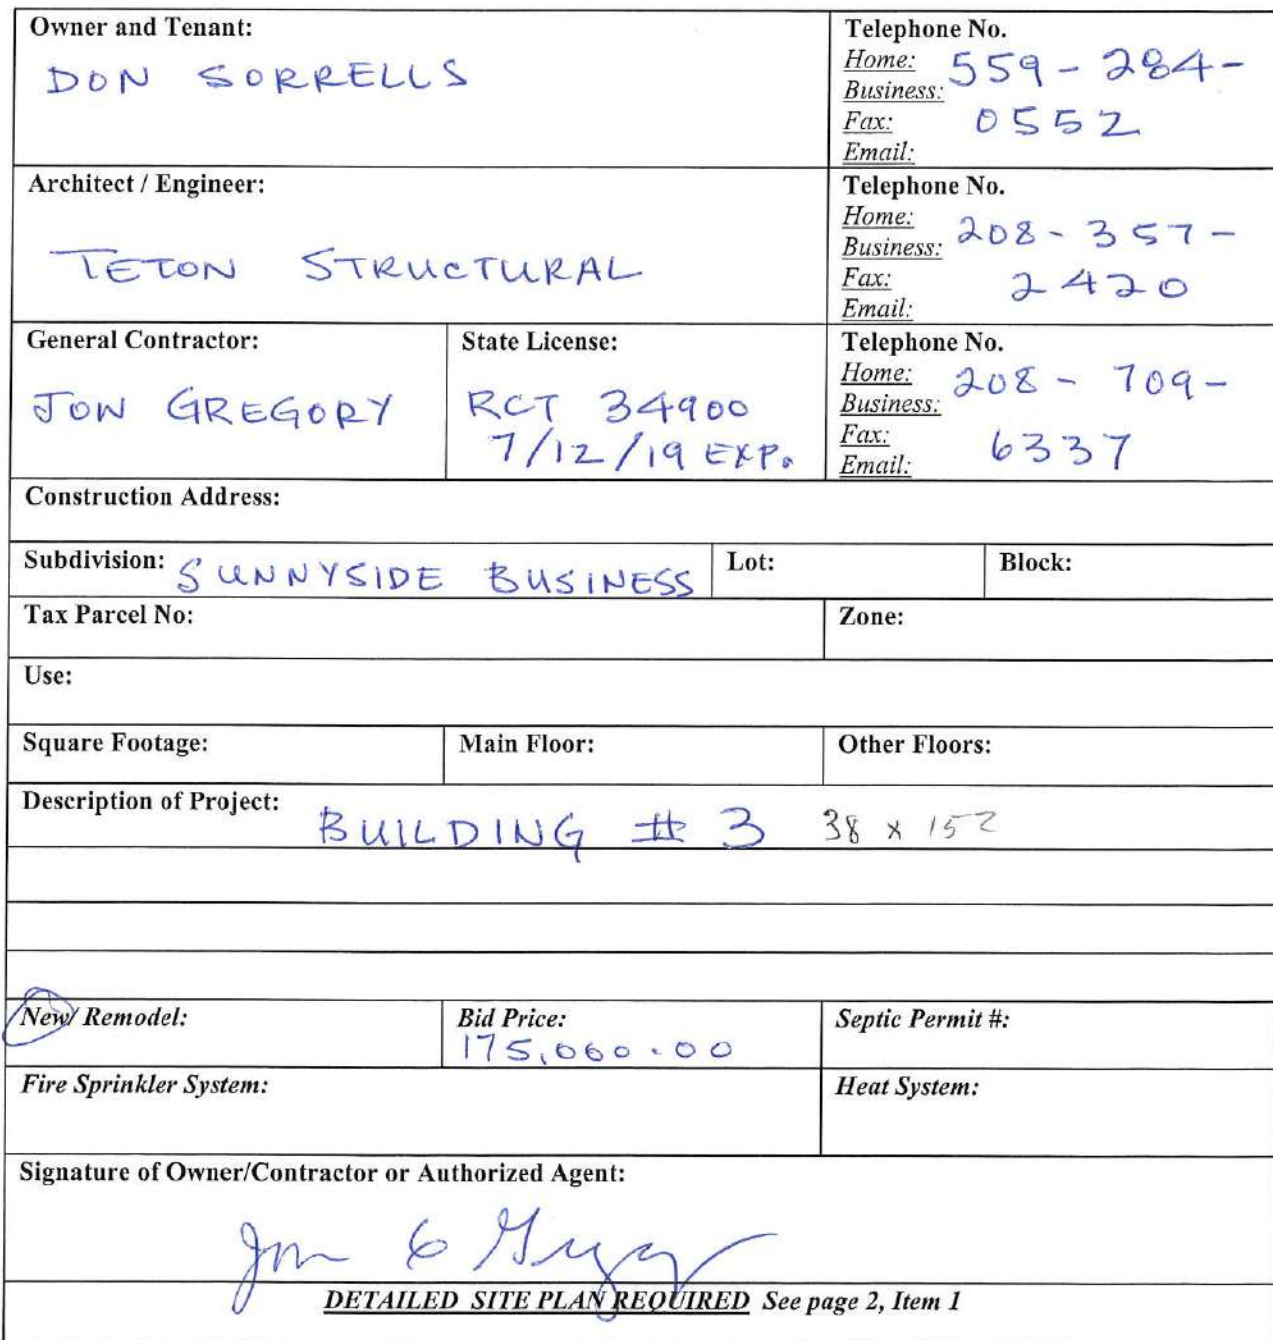 Owner and Tenant:
DON SORRELLS
Telephone No.
Home: 559-284-
Business:
Fax: 0552
Email:
Architect / Engineer:
TETON STRUCTURAL
Telephone No.
Home: 208-357-
Business:
Fax: 2420
Email:
General Contractor:
JON GREGORY
State License:
RCT 34900
7/12/19 EXP.
Telephone No.
Home: 208-709-
Business:
Fax: 6337
Email:
Construction Address:
Subdivision: SUNNYSIDE BUSINESS
Lot:
Block:
Tax Parcel No:
Zone:
Use:
Square Footage:
Main Floor:
Other Floors:
Description of Project: BUILDING # 3 38 x 152
New/ Remodel:
Bid Price:
175,000.00
Septic Permit #:
Fire Sprinkler System:
Heat System:
Signature of Owner/Contractor or Authorized Agent:
DETAILED SITE PLAN REQUIRED See page 2, Item 1